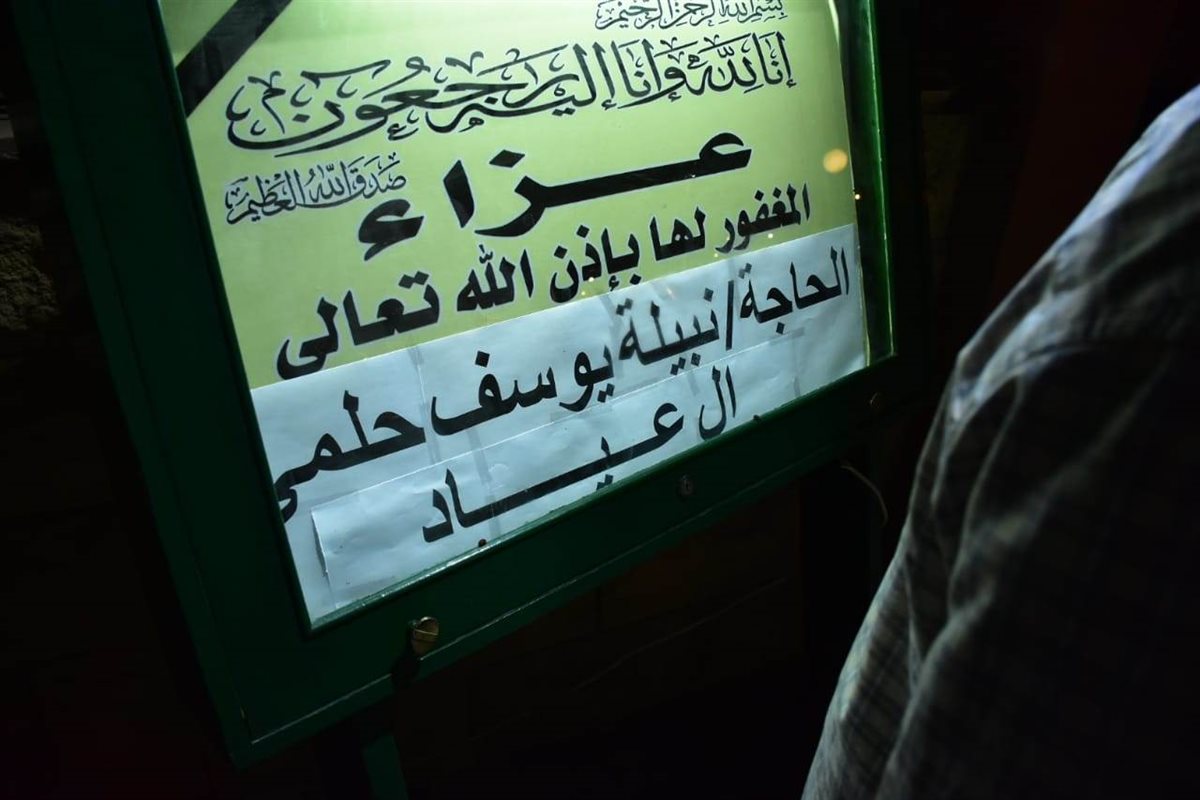 بسم الله الرحمن الرحيم
إنا لله وإنا إليه راجعون
صدق الله العظيم
عزاء
المغفور لها بإذن الله تعالى
الحاجة/نبيلة يوسف حلمى
ال عياد